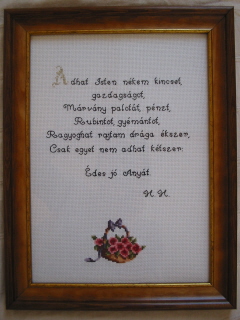 Adhat Isten nékem kincset,
gazdagságot,
Márvány palotát, pénzt,
Roubintot, gyémántot,
Ragyoghat rajtam drága ékszer,
Csak egyet nem adhat kétszer:
Édes jó Anyát.
H. H.